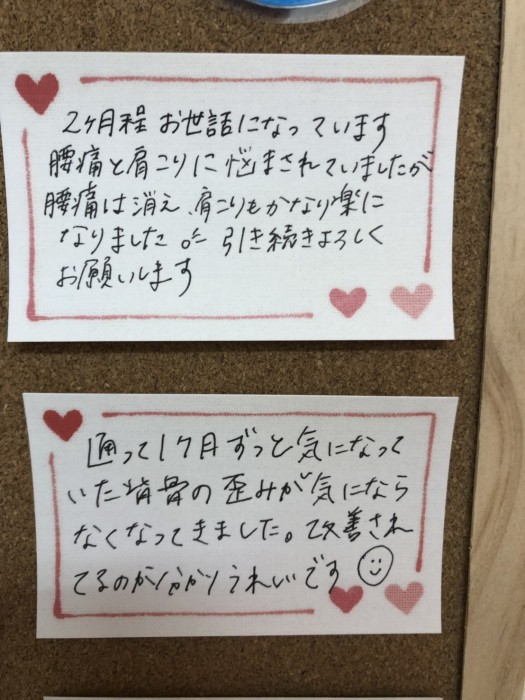 2ヶ月程 お世話になっています
腰痛と肩こりに悩まされていましたが
腰痛は消え、肩こりもかなり楽に
なりました。引き続きよろしく
お願いします
通って1ヶ月ずっと気になって
いた背骨の歪みが気になら
なくなってきました。改善され
てるのが分かりうれしいです